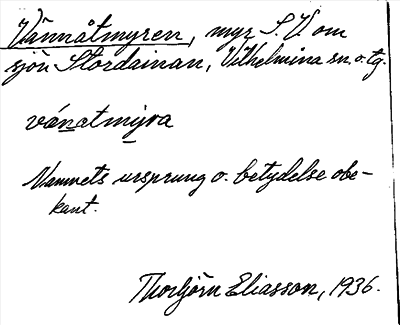 Vännåtmyren, myr S.V. om
sjön Stordainan, Vilhelmina sn. o. tg.
vánatmýra
Namnets ursprung o. betydelse obe-
kant.
Thorbjörn Eliasson, 1936.